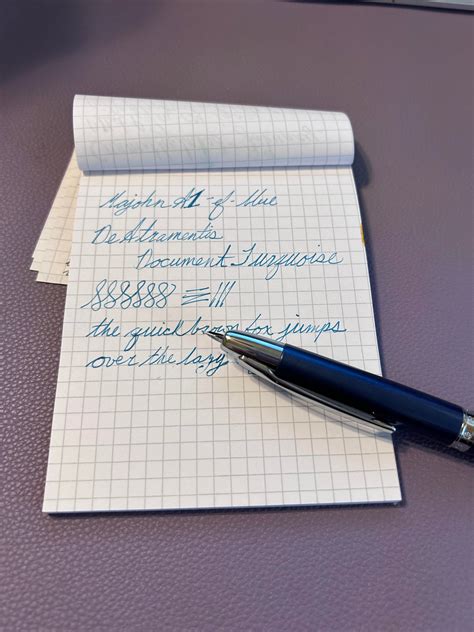 Majohn A1 -ef- blue
De Atramentis
Document Turquoise
the quick brown fox jumps
over the lazy